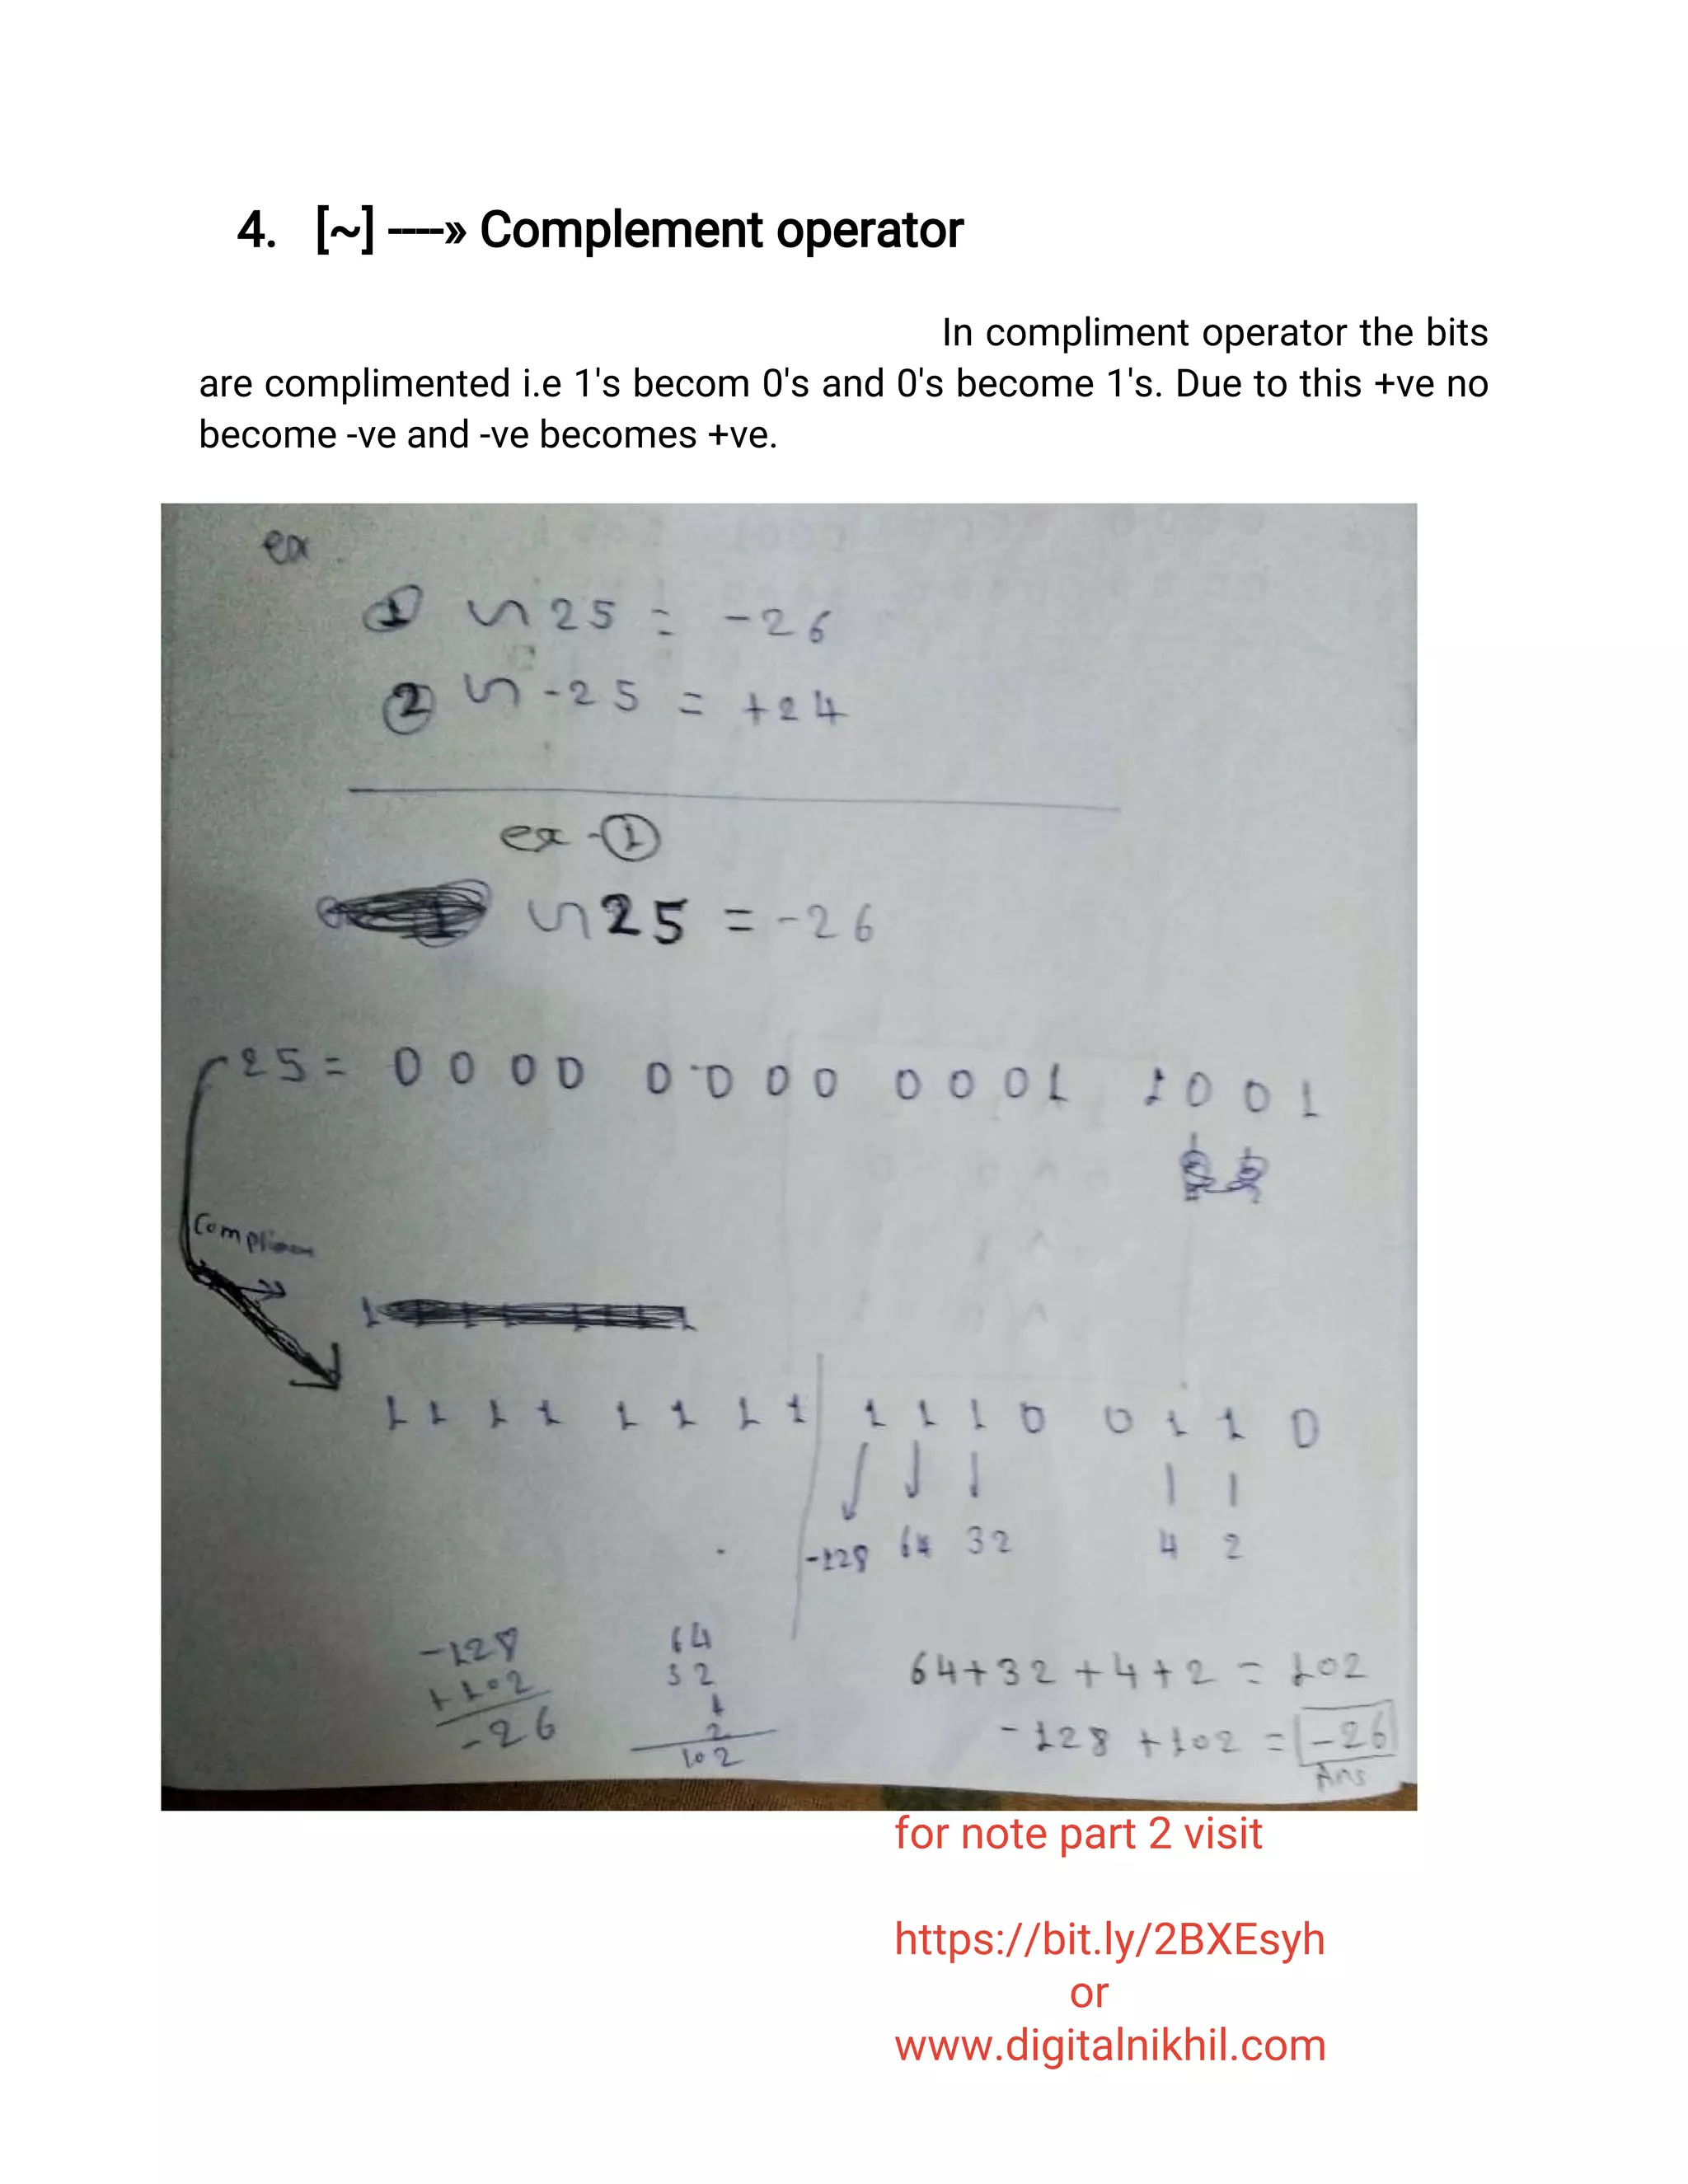 4. [~] ----» Complement operator
In compliment operator the bits
are complimented i.e 1's becom 0's and 0's become 1's. Due to this +ve no
become -ve and -ve becomes +ve.
ex
① ~25 = -26
② ~-25 = +24
ex-①
~25 = -26
25= 0 0 0 0 0 0 0 0 0 0 0 1 1 0 0 1
1 1 1 1 1 1 1 1 1 1 1 0 0 1 1 0
-128 64 32 4 2
-128
+102
-26
64
32
4
2
102
64+32+4+2 = 102
-128+102 = -26
Ans
for note part 2 visit
https://bit.ly/2BXEsyh
or
www.digitalnikhil.com